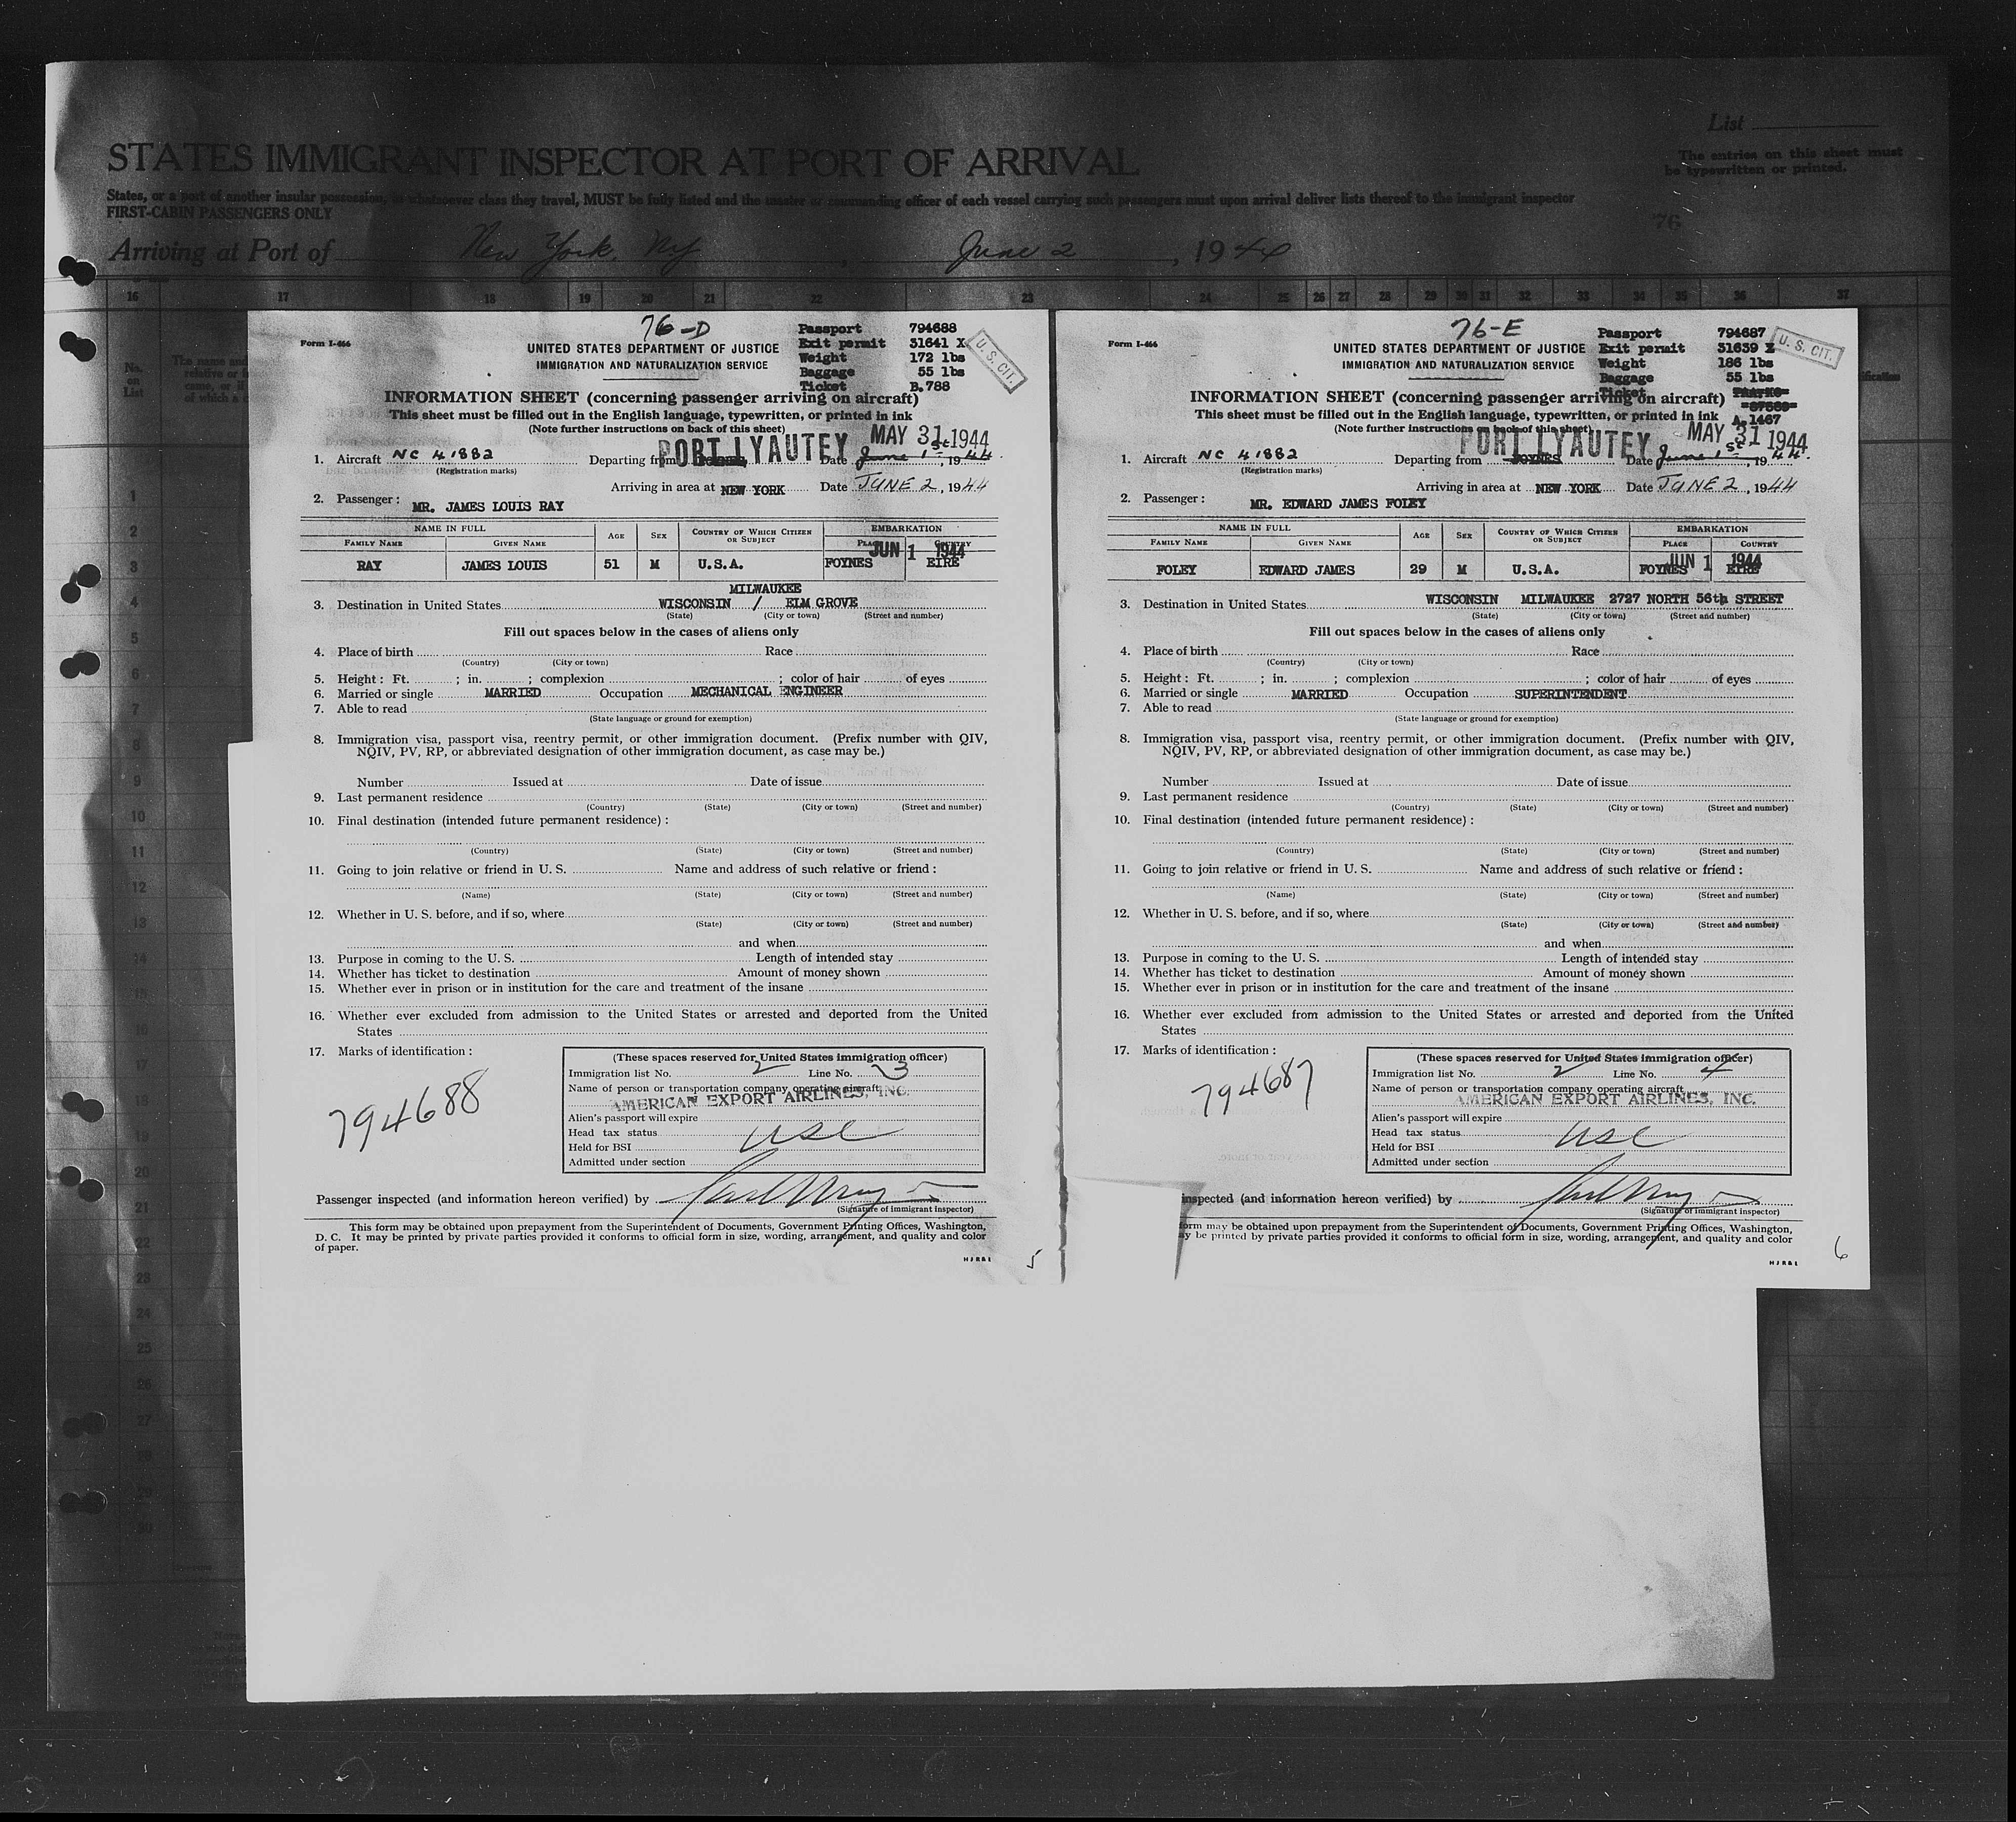 List
STATES IMMIGRANT INSPECTOR AT PORT OF ARRIVAL
The entries on this sheet must
be typewritten or printed.
States, or a port of another insular possession, in whatsoever class they travel, MUST be fully listed and the master or commanding officer of each vessel carrying such passengers must upon arrival deliver lists thereof to the immigrant inspector
FIRST-CABIN PASSENGERS ONLY
76
Arriving at Port of New York, NY, June 2, 1944
16 17 18 19 20 21 22 23 24 25 26 27 28 29 30 31 32 33 34 35 36 37
No. on List
1
2
3
4
5
6
7
8
9
10
11
12
13
14
15
16
17
18
19
20
21
22
23
24
25
26
27
28
29
30
76-D
Form I-466
Passport 794688
Exit permit 31641 X
Weight 172 lbs
Baggage 55 lbs
Ticket B.788
U. S. CIT.
UNITED STATES DEPARTMENT OF JUSTICE
IMMIGRATION AND NATURALIZATION SERVICE
INFORMATION SHEET (concerning passenger arriving on aircraft)
This sheet must be filled out in the English language, typewritten, or printed in ink
(Note further instructions on back of this sheet)
PORT LYAUTEY MAY 31 1944
1. Aircraft NC 41882 Departing from FOYNES Date June 1st, 1944.
(Registration marks)
Arriving in area at NEW YORK Date JUNE 2, 1944
2. Passenger: MR. JAMES LOUIS RAY
NAME IN FULL AGE SEX COUNTRY OF WHICH CITIZEN OR SUBJECT EMBARKATION
FAMILY NAME GIVEN NAME PLACE COUNTRY
JUN 1 1944
RAY JAMES LOUIS 51 M U.S.A. FOYNES EIRE
MILWAUKEE
3. Destination in United States WISCONSIN / ELM GROVE
(State) (City or town) (Street and number)
Fill out spaces below in the cases of aliens only
4. Place of birth Race
(Country) (City or town)
5. Height: Ft. ; in. ; complexion ; color of hair of eyes
6. Married or single MARRIED Occupation MECHANICAL ENGINEER
7. Able to read
(State language or ground for exemption)
8. Immigration visa, passport visa, reentry permit, or other immigration document. (Prefix number with QIV,
NQIV, PV, RP, or abbreviated designation of other immigration document, as case may be.)
Number Issued at Date of issue
9. Last permanent residence
(Country) (State) (City or town) (Street and number)
10. Final destination (intended future permanent residence):
(Country) (State) (City or town) (Street and number)
11. Going to join relative or friend in U. S. Name and address of such relative or friend:
(Name) (State) (City or town) (Street and number)
12. Whether in U. S. before, and if so, where
(State) (City or town) (Street and number)
and when
13. Purpose in coming to the U. S. Length of intended stay
14. Whether has ticket to destination Amount of money shown
15. Whether ever in prison or in institution for the care and treatment of the insane
16. Whether ever excluded from admission to the United States or arrested and deported from the United
States
17. Marks of identification:
794688
(These spaces reserved for United States immigration officer)
Immigration list No. 2 Line No. 3
Name of person or transportation company operating aircraft
AMERICAN EXPORT AIRLINES, INC.
Alien's passport will expire
Head tax status USC
Held for BSI
Admitted under section
Passenger inspected (and information hereon verified) by
(Signature of immigrant inspector)
This form may be obtained upon prepayment from the Superintendent of Documents, Government Printing Offices, Washington,
D. C. It may be printed by private parties provided it conforms to official form in size, wording, arrangement, and quality and color
of paper.
H J R & L
5
76-E
Form I-466
Passport 794687
Exit permit 31639 X
Weight 186 lbs
Baggage 55 lbs
Ticket
A.1467
U. S. CIT.
UNITED STATES DEPARTMENT OF JUSTICE
IMMIGRATION AND NATURALIZATION SERVICE
INFORMATION SHEET (concerning passenger arriving on aircraft)
This sheet must be filled out in the English language, typewritten, or printed in ink
(Note further instructions on back of this sheet)
PORT LYAUTEY MAY 31 1944
1. Aircraft NC 41882 Departing from FOYNES Date June 1st, 1944.
(Registration marks)
Arriving in area at NEW YORK Date JUNE 2, 1944
2. Passenger: MR. EDWARD JAMES FOLEY
NAME IN FULL AGE SEX COUNTRY OF WHICH CITIZEN OR SUBJECT EMBARKATION
FAMILY NAME GIVEN NAME PLACE COUNTRY
JUN 1 1944
FOLEY EDWARD JAMES 29 M U.S.A. FOYNES EIRE
3. Destination in United States WISCONSIN MILWAUKEE 2727 NORTH 56th STREET
(State) (City or town) (Street and number)
Fill out spaces below in the cases of aliens only
4. Place of birth Race
(Country) (City or town)
5. Height: Ft. ; in. ; complexion ; color of hair of eyes
6. Married or single MARRIED Occupation SUPERINTENDENT
7. Able to read
(State language or ground for exemption)
8. Immigration visa, passport visa, reentry permit, or other immigration document. (Prefix number with QIV,
NQIV, PV, RP, or abbreviated designation of other immigration document, as case may be.)
Number Issued at Date of issue
9. Last permanent residence
(Country) (State) (City or town) (Street and number)
10. Final destination (intended future permanent residence):
(Country) (State) (City or town) (Street and number)
11. Going to join relative or friend in U. S. Name and address of such relative or friend:
(Name) (State) (City or town) (Street and number)
12. Whether in U. S. before, and if so, where
(State) (City or town) (Street and number)
and when
13. Purpose in coming to the U. S. Length of intended stay
14. Whether has ticket to destination Amount of money shown
15. Whether ever in prison or in institution for the care and treatment of the insane
16. Whether ever excluded from admission to the United States or arrested and deported from the United
States
17. Marks of identification:
794687
(These spaces reserved for United States immigration officer)
Immigration list No. 2 Line No. 4
Name of person or transportation company operating aircraft
AMERICAN EXPORT AIRLINES, INC.
Alien's passport will expire
Head tax status USC
Held for BSI
Admitted under section
inspected (and information hereon verified) by
(Signature of immigrant inspector)
form may be obtained upon prepayment from the Superintendent of Documents, Government Printing Offices, Washington,
ay be printed by private parties provided it conforms to official form in size, wording, arrangement, and quality and color
H J R & L
6